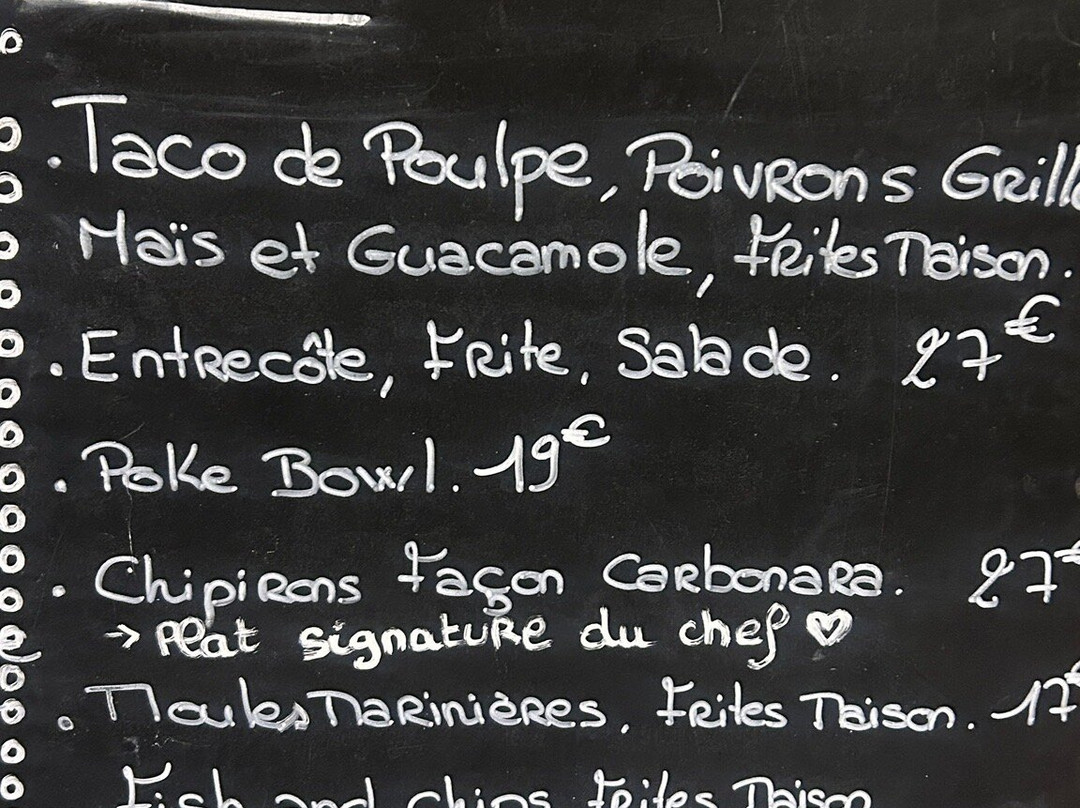 . Taco de Poulpe, Poivrons Grill
Maïs et Guacamole, Frites Maison.
. Entrecôte, Frite, Salade. 27€
. Poke Bowl. 19€
. Chipirons Façon Carbonara. 27€
→ Plat signature du chef ♡
. Moules Marinières, Frites Maison. 17€
Fish and chips Frites Maison